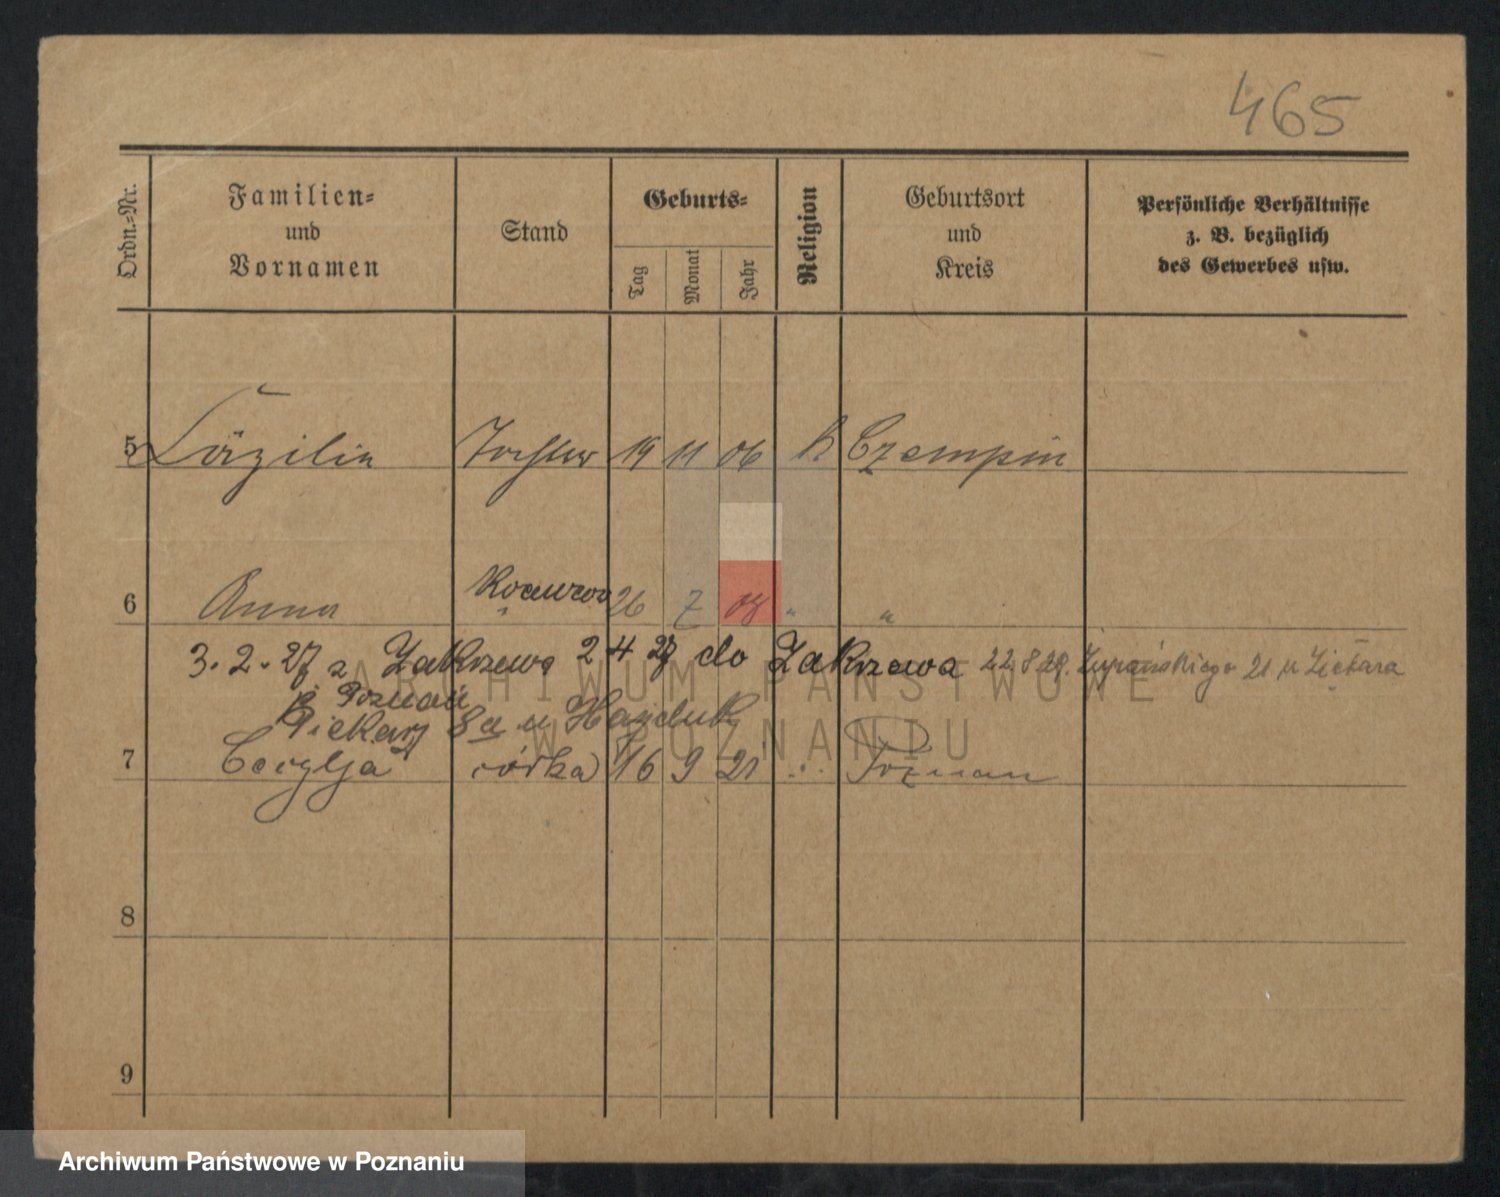 465
Ordn.-Nr.
Familien- und Vornamen
Stand
Geburts-
Tag
Monat
Jahr
Religion
Geburtsort und Kreis
Persönliche Verhältnisse z. B. bezüglich des Gewerbes usw.
5 Cäzilie Tochter 19 11 06 k Czempin
6 Anna " 26 7 " "
3. 2. 27 z Zakrzewa 2 4 27 do Zakrzewa 22 8 28. Żupańskiego 21 u Ziętara
Poznań
Piekary 8a u Hajduk
7 Cecylja córka 16 9 21 Poznań
8
9
ARCHIWUM PAŃSTWOWE
W POZNANIU
Archiwum Państwowe w Poznaniu